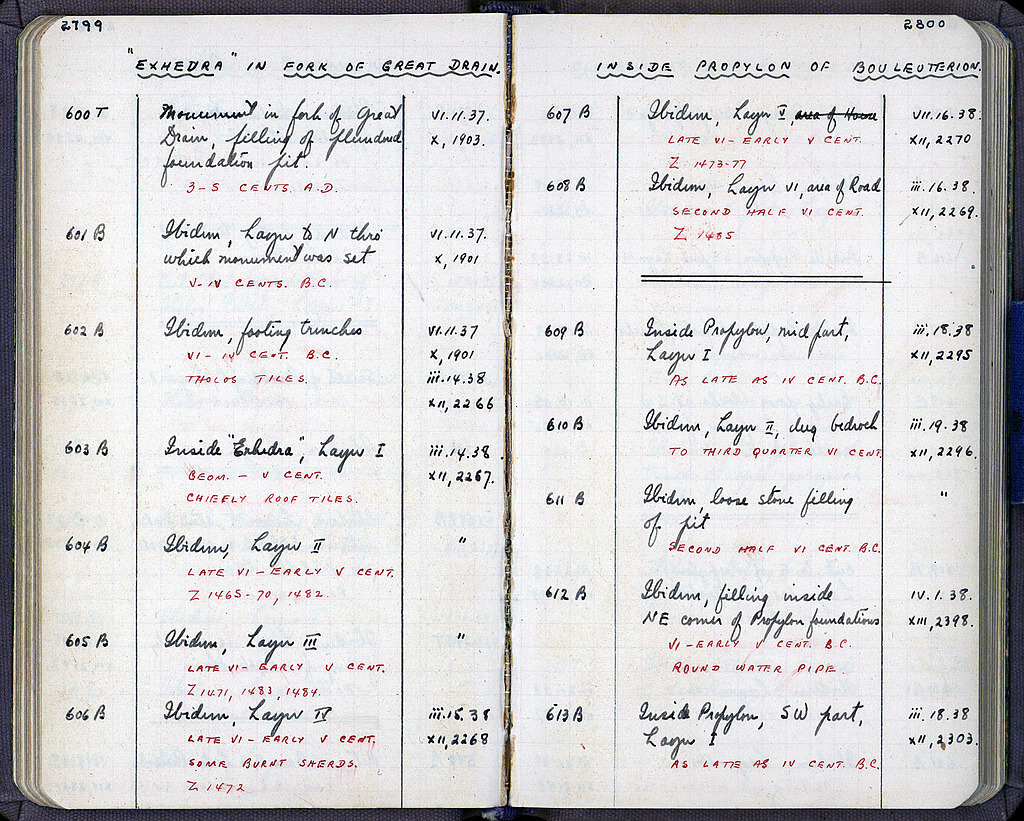 2799
"EXHEDRA" IN FORK OF GREAT DRAIN.
600 T Monument in fork of Great VI.11.37.
Drain, filling of plundered X, 1903.
foundation pit.
3-5 CENTS. A.D.
601 B Ibidem, Layer to N thro' VI.11.37.
which monument was set X, 1901
V-IV CENTS. B.C.
602 B Ibidem, footing trenches VI.11.37
VI-IV CENT. B.C. X, 1901
THOLOS TILES. iii.14.38
XII, 2266
603 B Inside "Exhedra", Layer I iii.14.38.
GEOM. - V CENT. XII, 2267.
CHIEFLY ROOF TILES.
604 B Ibidem, Layer II "
LATE VI - EARLY V CENT.
Z 1465-70, 1482.
605 B Ibidem, Layer III "
LATE VI - EARLY V CENT.
Z 1471, 1483, 1484.
606 B Ibidem, Layer IV iii.15.38
LATE VI - EARLY V CENT. XII, 2268
SOME BURNT SHERDS.
Z 1472
2800
INSIDE PROPYLON OF BOULEUTERION.
607 B Ibidem, Layer V, area of House VII.16.38.
LATE VI - EARLY V CENT. XII, 2270
Z 1473-77
608 B Ibidem, Layer VI, area of Road iii.16.38.
SECOND HALF VI CENT. XII, 2269.
Z 1485
609 B Inside Propylon, mid part, iii.18.38
Layer I XII, 2295
AS LATE AS IV CENT. B.C.
610 B Ibidem, Layer II, dug bedrock iii.19.38
TO THIRD QUARTER VI CENT. XII, 2296.
611 B Ibidem, loose stone filling "
of pit
SECOND HALF VI CENT. B.C.
612 B Ibidem, filling inside IV.1.38.
NE corner of Propylon foundations XIII, 2398.
VI - EARLY V CENT. B.C.
ROUND WATER PIPE
613 B Inside Propylon, SW part, iii.18.38
Layer I XII, 2303.
AS LATE AS IV CENT. B.C.